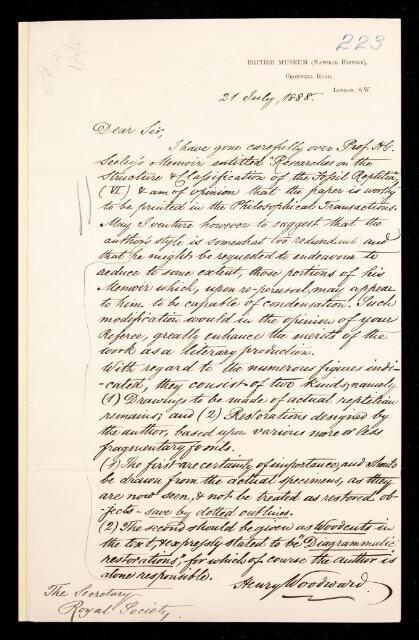 223
BRITISH MUSEUM (NATURAL HISTORY),
CROMWELL ROAD,
LONDON, S.W
21 July, 1888.
Dear Sir,
I have gone carefully over Prof. H.G.
Seeley's Memoir entitled "Researches on the
Structure & Classification of the Fossil Reptilia,"
(VI) & am of opinion that the paper is worthy
to be printed in the Philosophical Transactions.
May I venture however to suggest that the
author's style is somewhat too redundant and
that he might be requested to endeavour to
reduce to some extent, those portions of his
Memoir which, upon re-perusal, may appear
to him to be capable of condensation. Such
modification would in the opinion of your
Referee, greatly enhance the merits of the
work as a literary production.
With regard to the numerous figures indi-
-cated, they consist of two kinds, namely
(1) Drawings to be made of actual reptilian
remains; and (2) Restorations designed by
the author, based upon various more or less
fragmentary fossils.
(1) The first are certainly of importance, and should
be drawn from the actual specimens, as they
are now seen, & not be treated as restored ob-
jects – save by dotted outlines.
(2) The second should be given as Woodcuts in
the text, & expressly stated to be "Diagrammatic
restorations," for which of course the author is
alone responsible.
Henry Woodward.
The Secretary
Royal Society.